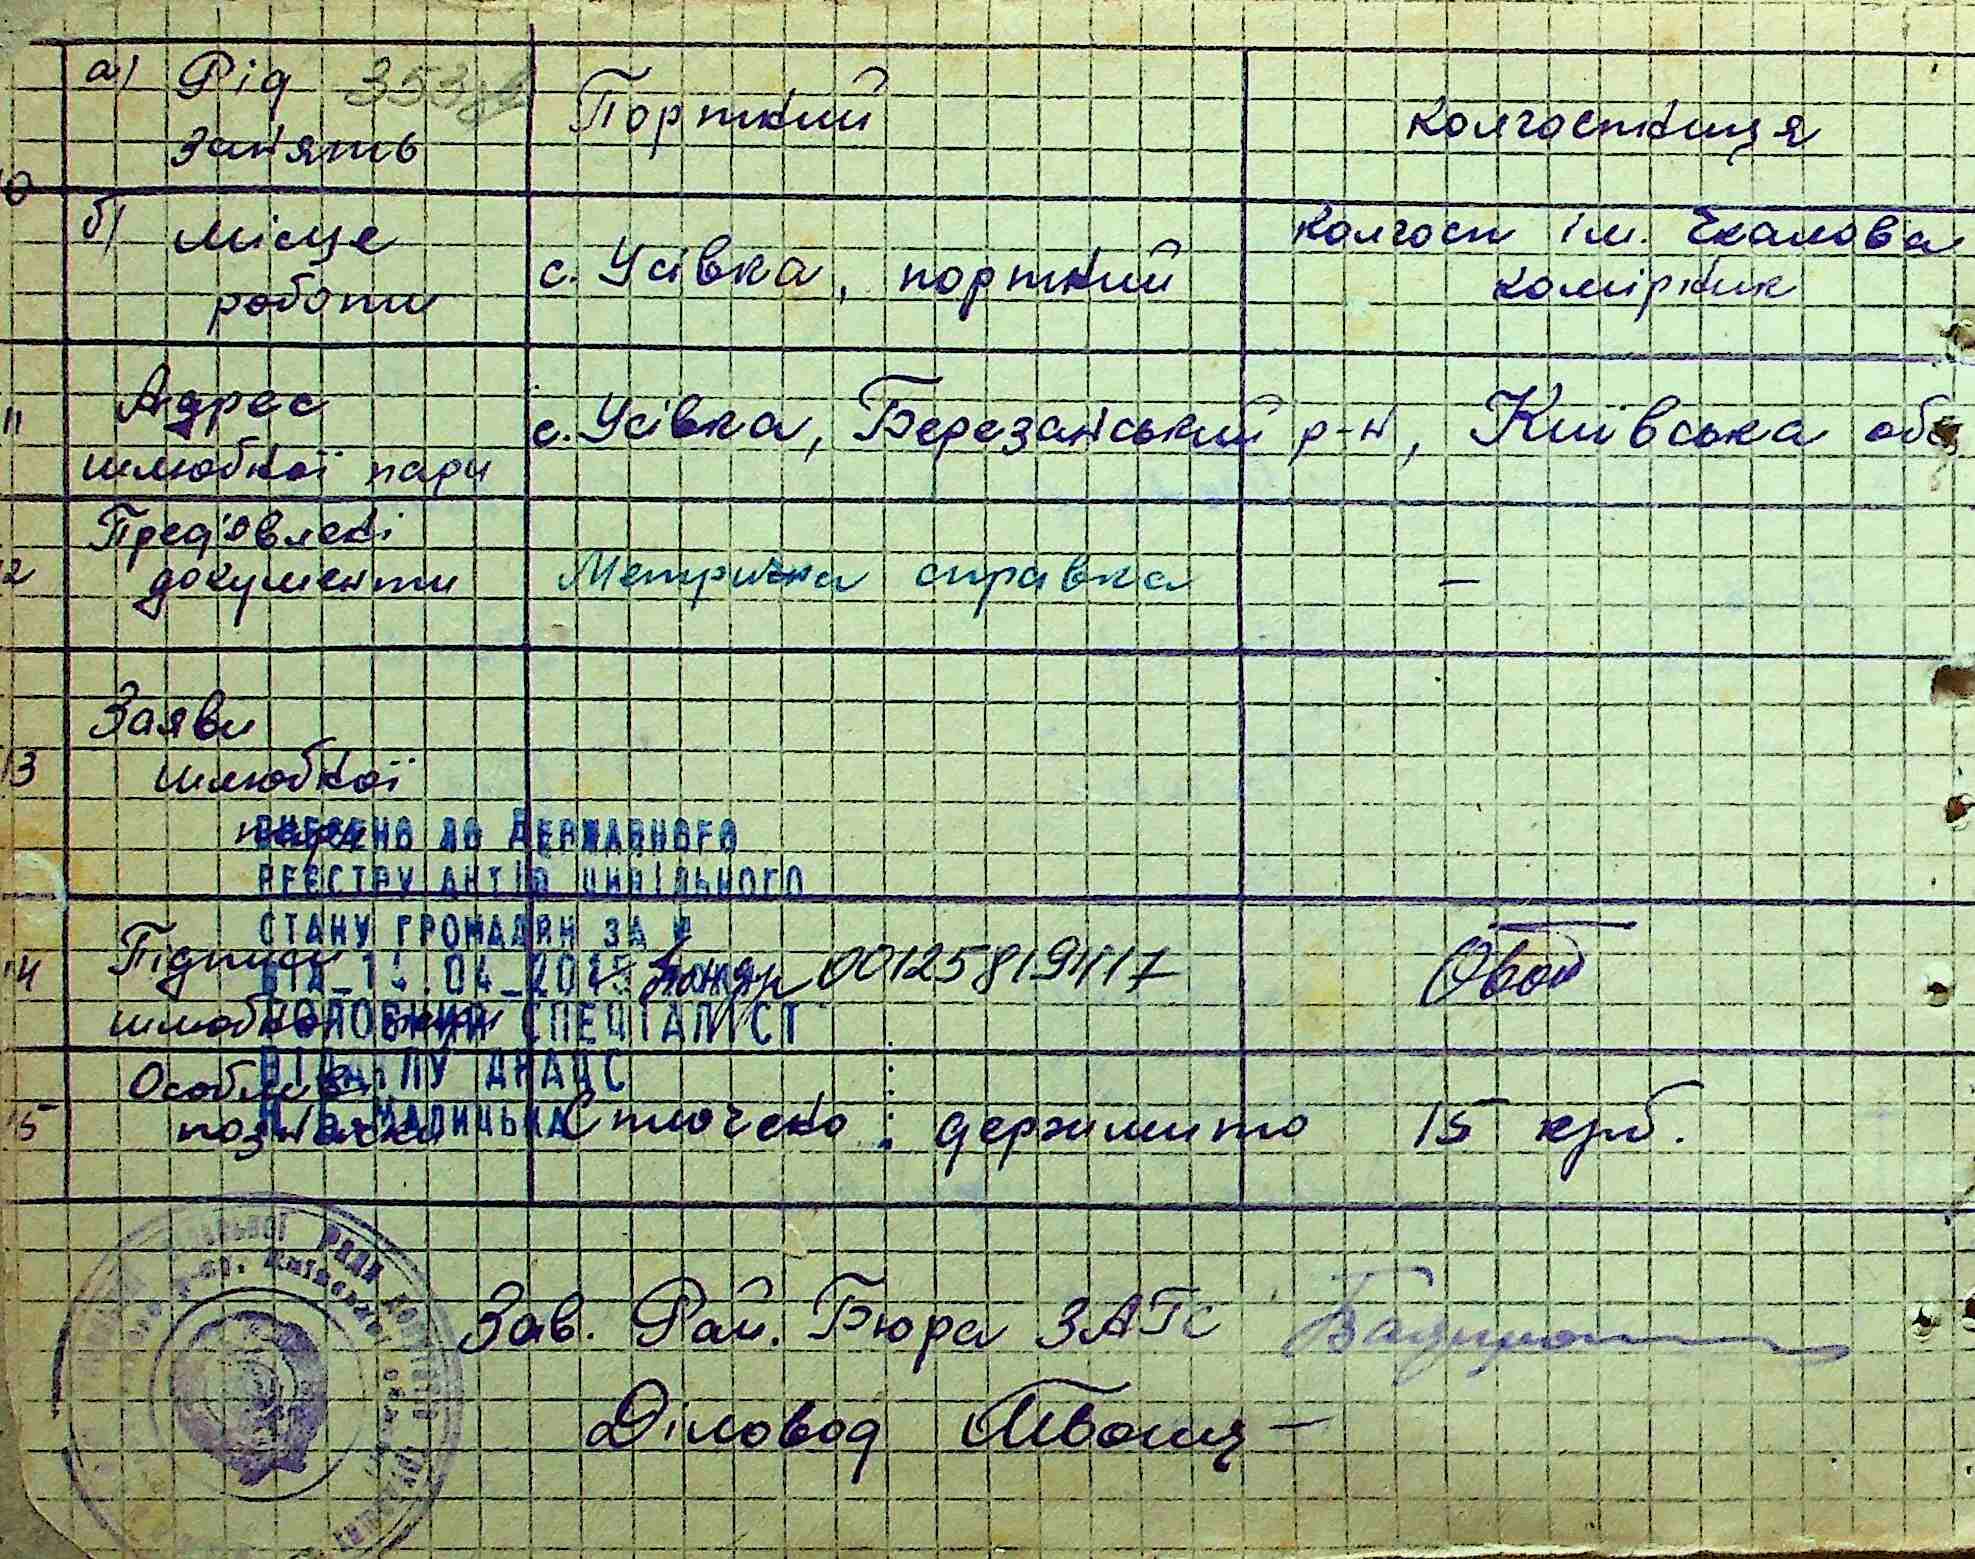 а) Рід
занять
Портний
колгоспниця
10
б) місце
роботи
с. Усівка, портний
колгосп ім. Чкалова
комірник
11
Адрес
шлюбної пари
с. Усівка, Березанський р-н, Київська обл
12
Пред'явлені
документи
Метрична справка
–
13
Заяви
шлюбної
пари
ВНЕСЕНО ДО ДЕРЖАВНОГО
РЕЄСТРУ АКТІВ ЦИВІЛЬНОГО
СТАНУ ГРОМАДЯН ЗА №
00125819417
ГОЛОВНИЙ СПЕЦІАЛІСТ
ВІДДІЛУ ДРАЦС
МАЛИЦЬКА
14
Підписи
шлюбної пари
15
Особливі
позначки
Стягнено: держмито 15 крб.
Зав. Рай. Бюра ЗАГС
Діловод